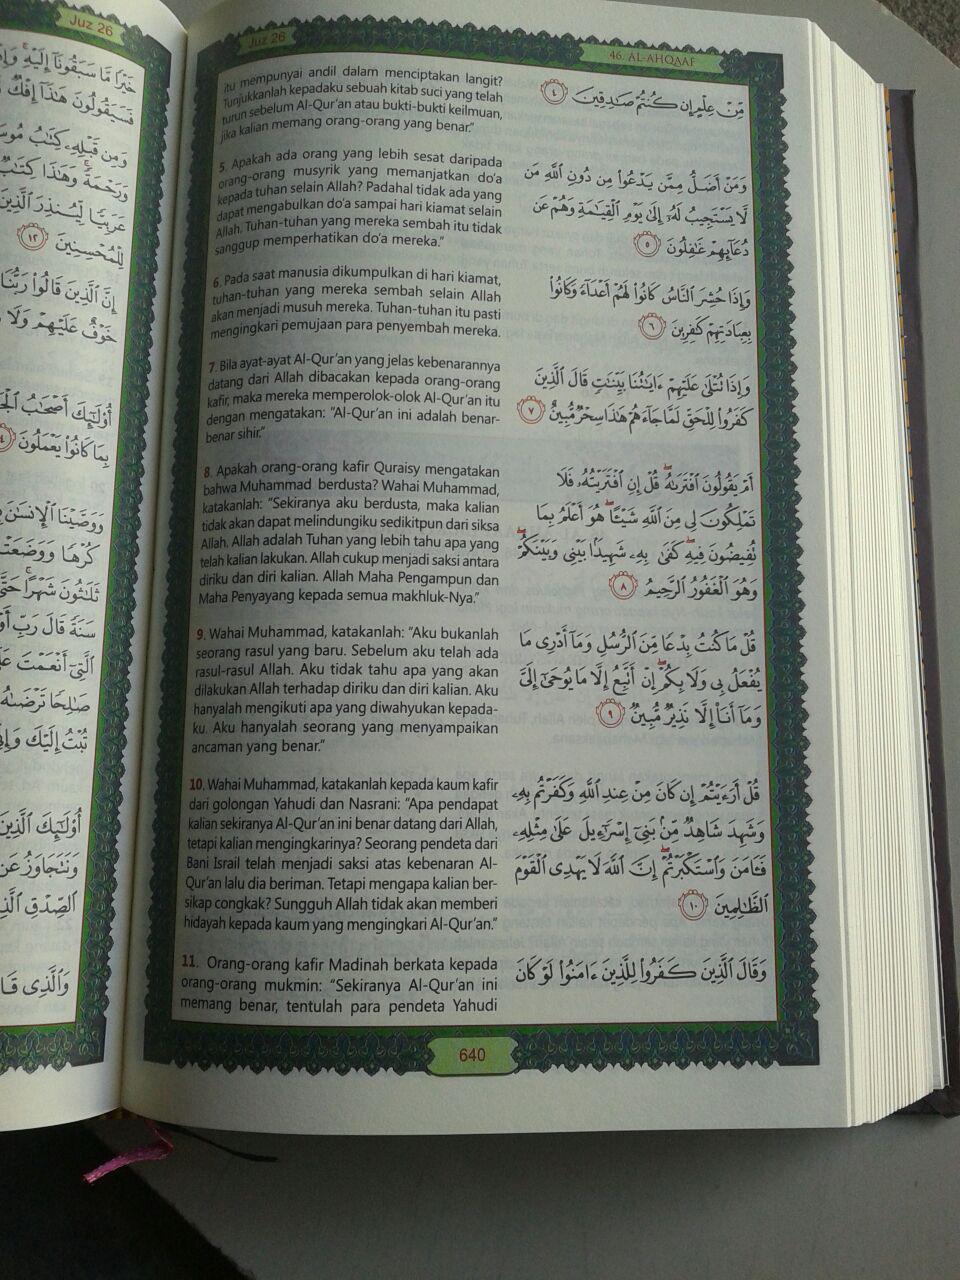 Juz 26
خَيْرًا مَّا سَبَقُونَآ إِلَيْهِ
فَسَيَقُولُونَ هَٰذَآ إِفْكٌ
وَمِن قَبْلِهِۦ كِتَٰبُ
وَرَحْمَةً وَهَٰذَا كِتَٰبٌ
عَرَبِيًّا لِّيُنذِرَ ٱلَّذِينَ
لِلْمُحْسِنِينَ ١٢
إِنَّ ٱلَّذِينَ قَالُوا۟ رَبُّنَا
خَوْفٌ عَلَيْهِمْ وَلَا
أُو۟لَٰٓئِكَ أَصْحَٰبُ
بِمَا كَانُوا۟ يَعْمَلُونَ
وَوَصَّيْنَا ٱلْإِنسَٰنَ
كُرْهًا وَوَضَعَتْهُ
ثَلَٰثُونَ شَهْرًا حَتَّىٰٓ
سَنَةً قَالَ رَبِّ
ٱلَّتِىٓ أَنْعَمْتَ
صَٰلِحًا تَرْضَىٰهُ
تُبْتُ إِلَيْكَ وَإِنِّى
أُو۟لَٰٓئِكَ ٱلَّذِينَ
وَنَتَجَاوَزُ عَن
ٱلصِّدْقِ ٱلَّذِى
وَٱلَّذِى قَالَ
Juz 26
46. AL-AHQAAF
itu mempunyai andil dalam menciptakan langit?
Tunjukkanlah kepadaku sebuah kitab suci yang telah
turun sebelum Al-Qur'an atau bukti-bukti keilmuan,
jika kalian memang orang-orang yang benar."
مِّنْ عِلْمٍ إِن كُنتُمْ صَٰدِقِينَ ٤
5. Apakah ada orang yang lebih sesat daripada
orang-orang musyrik yang memanjatkan do'a
kepada tuhan selain Allah? Padahal tidak ada yang
dapat mengabulkan do'a sampai hari kiamat selain
Allah. Tuhan-tuhan yang mereka sembah itu tidak
sanggup memperhatikan do'a mereka."
وَمَنْ أَضَلُّ مِمَّن يَدْعُوا۟ مِن دُونِ ٱللَّهِ مَن
لَّا يَسْتَجِيبُ لَهُۥٓ إِلَىٰ يَوْمِ ٱلْقِيَٰمَةِ وَهُمْ عَن
دُعَآئِهِمْ غَٰفِلُونَ ٥
6. Pada saat manusia dikumpulkan di hari kiamat,
tuhan-tuhan yang mereka sembah selain Allah
akan menjadi musuh mereka. Tuhan-tuhan itu pasti
mengingkari pemujaan para penyembah mereka.
وَإِذَا حُشِرَ ٱلنَّاسُ كَانُوا۟ لَهُمْ أَعْدَآءً وَكَانُوا۟
بِعِبَادَتِهِمْ كَٰفِرِينَ ٦
7. Bila ayat-ayat Al-Qur'an yang jelas kebenarannya
datang dari Allah dibacakan kepada orang-orang
kafir, maka mereka memperolok-olok Al-Qur'an itu
dengan mengatakan: "Al-Qur'an ini adalah benar-
benar sihir."
وَإِذَا تُتْلَىٰ عَلَيْهِمْ ءَايَٰتُنَا بَيِّنَٰتٍ قَالَ ٱلَّذِينَ
كَفَرُوا۟ لِلْحَقِّ لَمَّا جَآءَهُمْ هَٰذَا سِحْرٌ مُّبِينٌ ٧
8. Apakah orang-orang kafir Quraisy mengatakan
bahwa Muhammad berdusta? Wahai Muhammad,
katakanlah: "Sekiranya aku berdusta, maka kalian
tidak akan dapat melindungiku sedikitpun dari siksa
Allah. Allah adalah Tuhan yang lebih tahu apa yang
telah kalian lakukan. Allah cukup menjadi saksi antara
diriku dan diri kalian. Allah Maha Pengampun dan
Maha Penyayang kepada semua makhluk-Nya."
أَمْ يَقُولُونَ ٱفْتَرَىٰهُ ۖ قُلْ إِنِ ٱفْتَرَيْتُهُۥ فَلَا
تَمْلِكُونَ لِى مِنَ ٱللَّهِ شَيْـًٔا ۖ هُوَ أَعْلَمُ بِمَا
تُفِيضُونَ فِيهِ ۖ كَفَىٰ بِهِۦ شَهِيدًۢا بَيْنِى وَبَيْنَكُمْ ۖ
وَهُوَ ٱلْغَفُورُ ٱلرَّحِيمُ ٨
9. Wahai Muhammad, katakanlah: "Aku bukanlah
seorang rasul yang baru. Sebelum aku telah ada
rasul-rasul Allah. Aku tidak tahu apa yang akan
dilakukan Allah terhadap diriku dan diri kalian. Aku
hanyalah mengikuti apa yang diwahyukan kepada-
ku. Aku hanyalah seorang yang menyampaikan
ancaman yang benar."
قُلْ مَا كُنتُ بِدْعًا مِّنَ ٱلرُّسُلِ وَمَآ أَدْرِى مَا
يُفْعَلُ بِى وَلَا بِكُمْ ۖ إِنْ أَتَّبِعُ إِلَّا مَا يُوحَىٰٓ إِلَىَّ
وَمَآ أَنَا۠ إِلَّا نَذِيرٌ مُّبِينٌ ٩
10. Wahai Muhammad, katakanlah kepada kaum kafir
dari golongan Yahudi dan Nasrani: "Apa pendapat
kalian sekiranya Al-Qur'an ini benar datang dari Allah,
tetapi kalian mengingkarinya? Seorang pendeta dari
Bani Israil telah menjadi saksi atas kebenaran Al-
Qur'an lalu dia beriman. Tetapi mengapa kalian ber-
sikap congkak? Sungguh Allah tidak akan memberi
hidayah kepada kaum yang mengingkari Al-Qur'an."
قُلْ أَرَءَيْتُمْ إِن كَانَ مِنْ عِندِ ٱللَّهِ وَكَفَرْتُم بِهِۦ
وَشَهِدَ شَاهِدٌ مِّنۢ بَنِىٓ إِسْرَٰٓءِيلَ عَلَىٰ مِثْلِهِۦ
فَـَٔامَنَ وَٱسْتَكْبَرْتُمْ ۖ إِنَّ ٱللَّهَ لَا يَهْدِى ٱلْقَوْمَ
ٱلظَّٰلِمِينَ ١٠
11. Orang-orang kafir Madinah berkata kepada
orang-orang mukmin: "Sekiranya Al-Qur'an ini
memang benar, tentulah para pendeta Yahudi
وَقَالَ ٱلَّذِينَ كَفَرُوا۟ لِلَّذِينَ ءَامَنُوا۟ لَوْ كَانَ
640